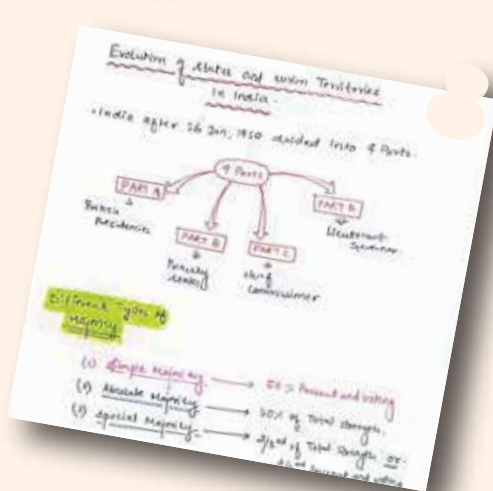 Evolution of States and union Territories
in India.
• India after 26 Jan, 1950 divided into 4 Parts.
4 Parts
PART A
British
Presidencies
PART B
Princely
States
PART C
Chief
Commissioner
PART D
Lieutenant
Governor
Different Types of
Majority
(1) Simple Majority → 50% Present and voting
Absolute Majority → 50% of Total strength.
Special Majority → 2/3rd of Total Strength or
Present and voting